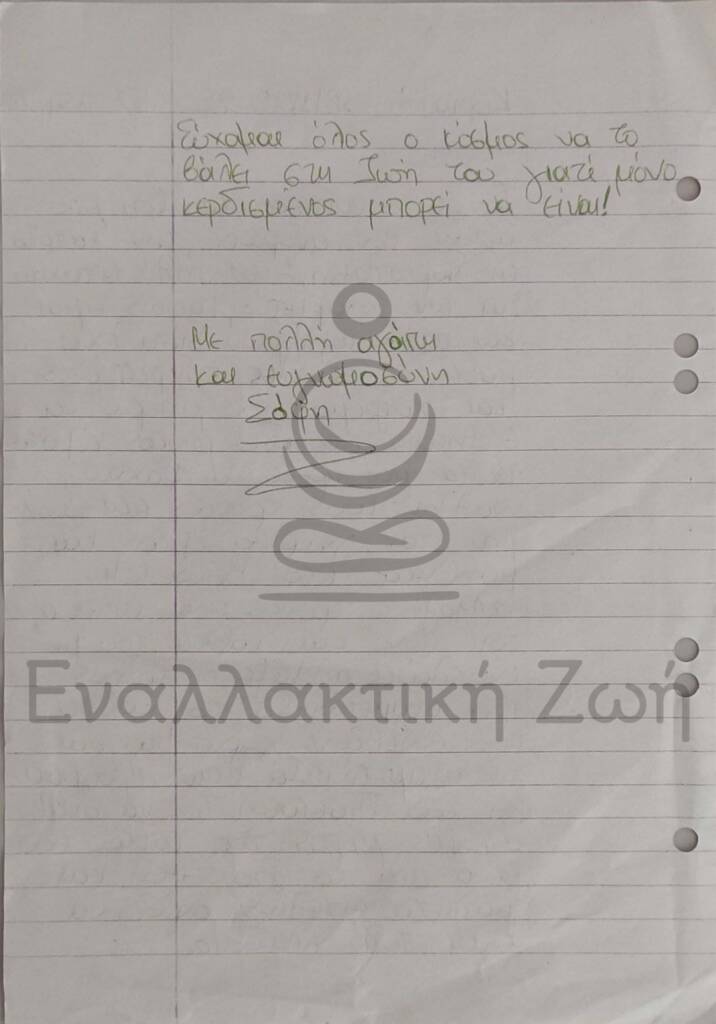 Εύχομαι όλος ο κόσμος να το
βάλει στη ζωή του γιατί μόνο
κερδισμένος μπορεί να είναι!
Με πολλή αγάπη
και ευγνωμοσύνη
Σόφη
Εναλλακτική Ζωή